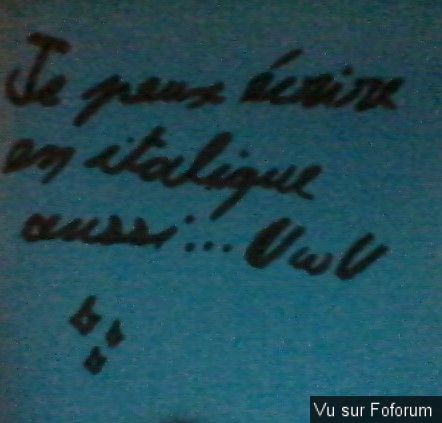 Je peux écrire
en italique
aussi... UwU
Vu sur Foforum